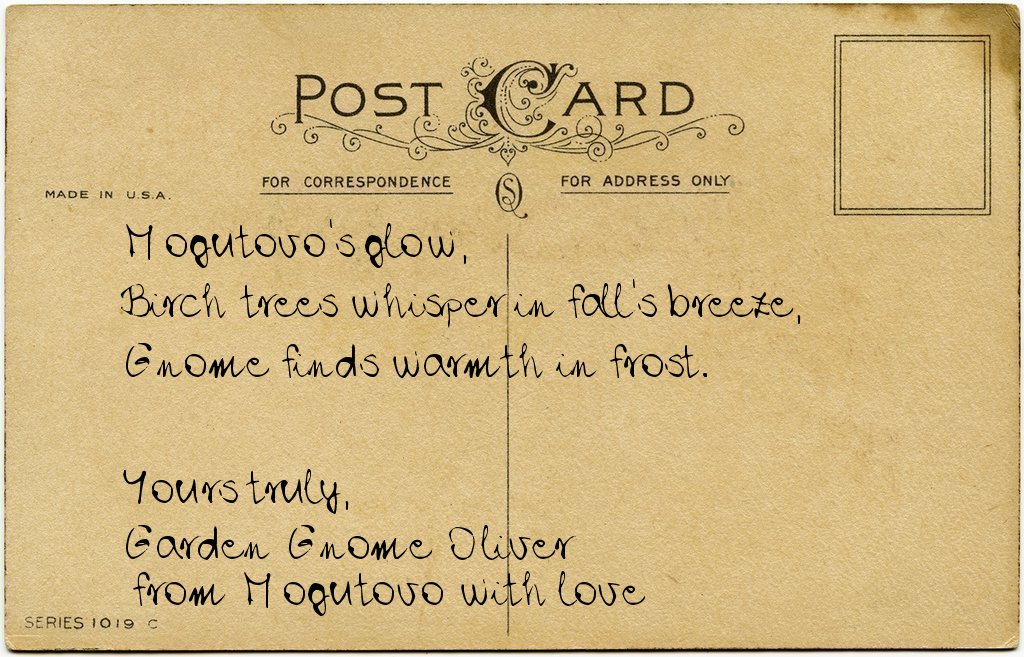 POST CARD
FOR CORRESPONDENCE
FOR ADDRESS ONLY
MADE IN U.S.A.
Mogutovo's glow,
Birch trees whisper in fall's breeze,
Gnome finds warmth in frost.
Yours truly,
Garden Gnome Oliver
from Mogutovo with love
SERIES 1019 C